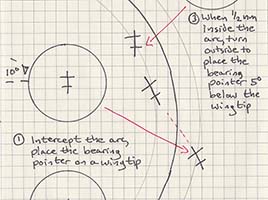 ③ When ½ nm
inside the
arc, turn
outside to
place the
bearing
pointer 5°
below the
wingtip
10°
① Intercept the arc,
place the bearing
pointer on a wingtip